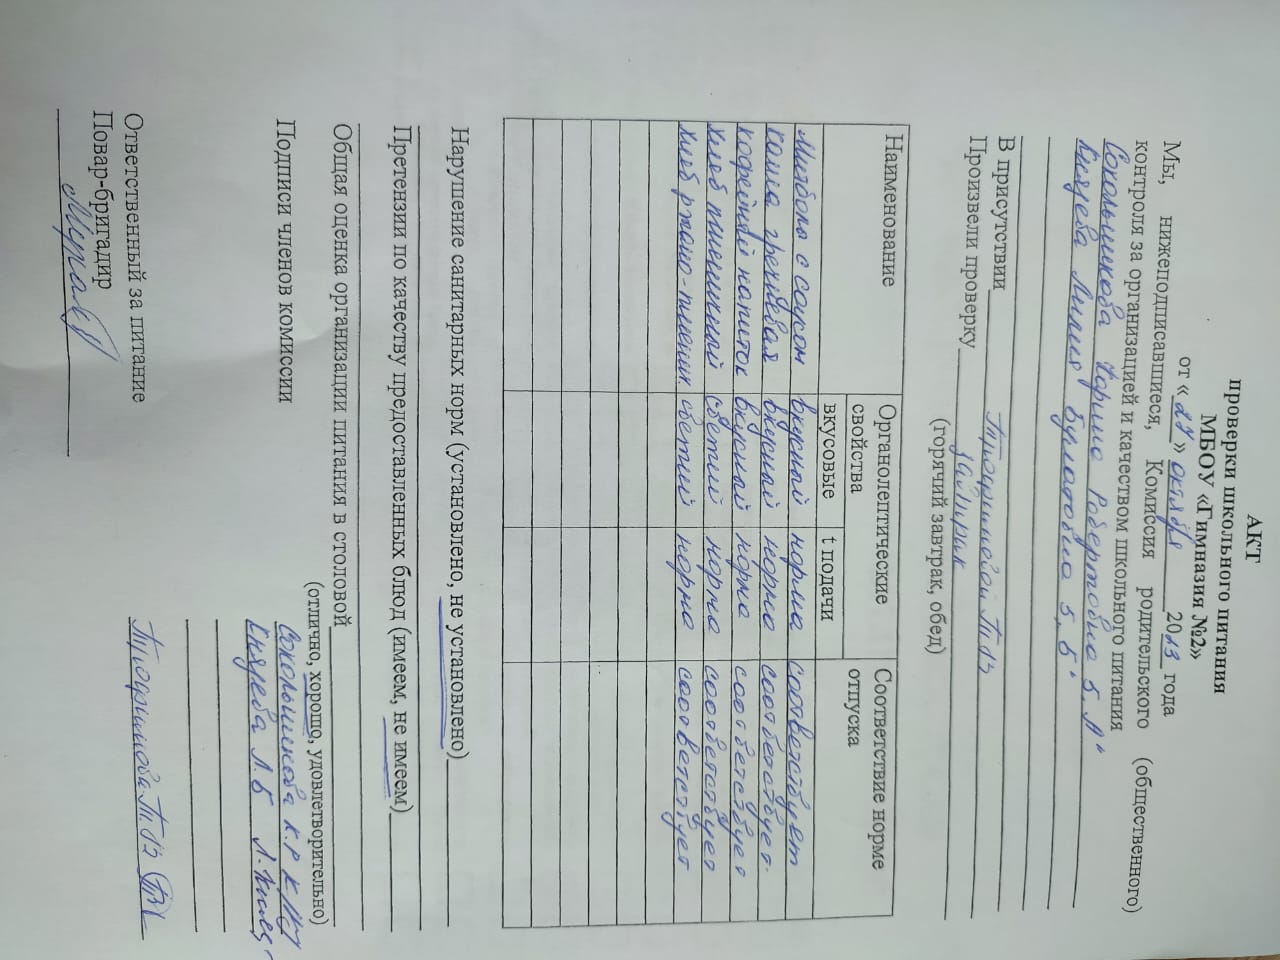 АКТ
проверки школьного питания
МБОУ «Гимназия №2»
от « » октября 2023 года
Мы, нижеподписавшиеся, Комиссия родительского (общественного)
контроля за организацией и качеством школьного питания
Сокольникова Карина Робертовна 5 „А“
Князева Лилия 5 „Б“
В присутствии Т.В
Произвели проверку завтрак
(горячий завтрак, обед)
Наименование Органолептические свойства Соответствие норме отпуска
вкусовые t подачи
Митболы с соусом вкусный норма соответствует
каша гречневая вкусный норма соответствует
кофейный напиток вкусный норма соответствует
хлеб пшеничный свежий норма соответствует
хлеб ржано-пшенич свежий норма соответствует
Нарушение санитарных норм (установлено, не установлено)
Претензии по качеству предоставленных блюд (имеем, не имеем)
Общая оценка организации питания в столовой
(отлично, хорошо, удовлетворительно)
Подписи членов комиссии Сокольникова К.Р
Князева Л.
Ответственный за питание Т.В
Повар-бригадир